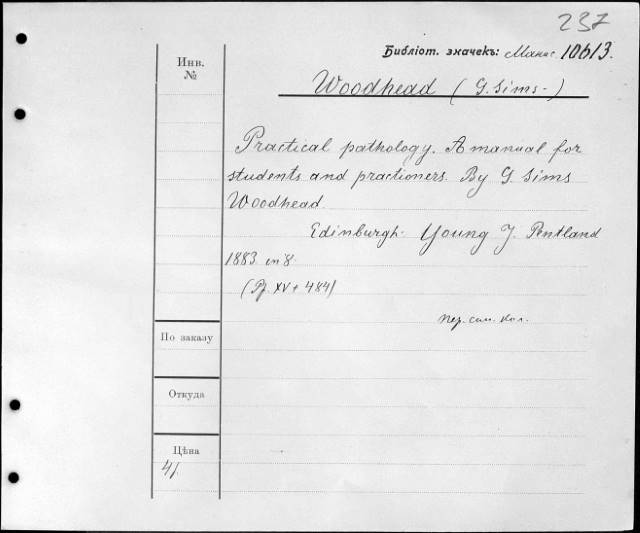 237
Библіот. значекъ: Манис. 10613.
Инв.
№
Woodhead (G. Sims-)
Practical pathology. A manual for
students and practioners. By G. Sims
Woodhead
Edinburgh. Young J. Pentland
1883 in 8.
(Pf. XV + 484)
По заказу
Откуда
Цѣна
4/.